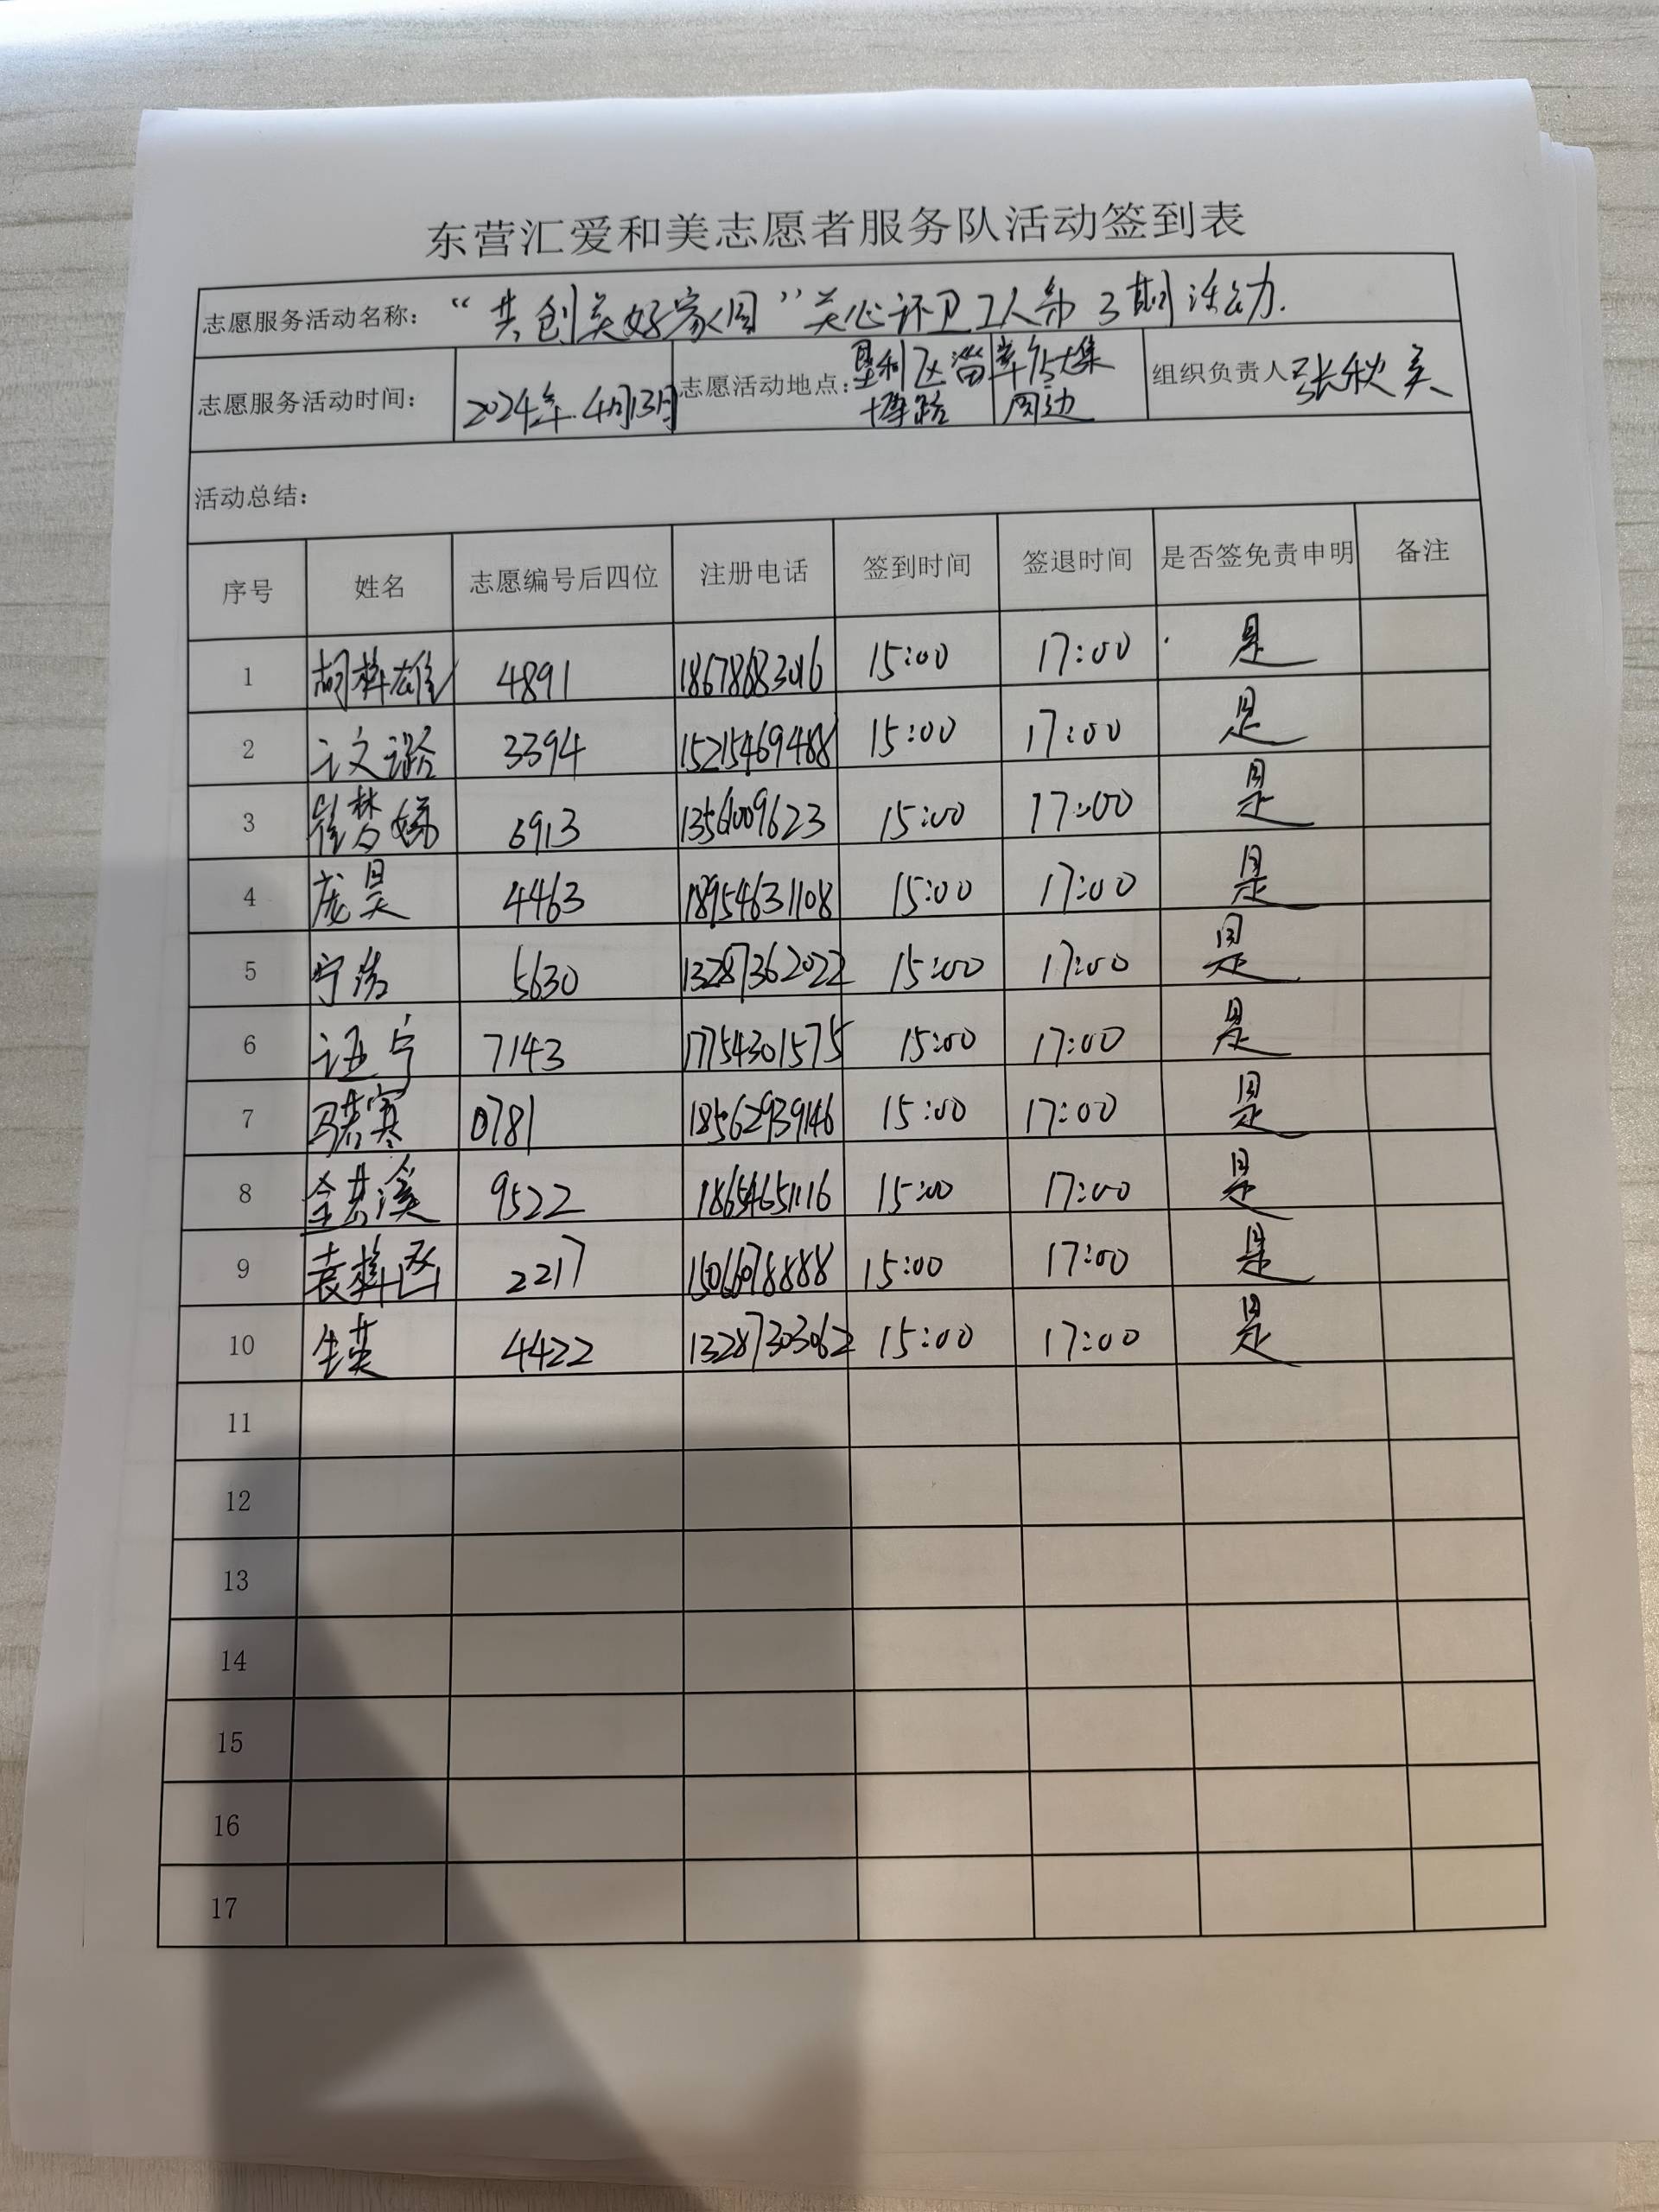 东营汇爱和美志愿者服务队活动签到表
志愿服务活动名称：“共创美好家园”关心环卫工人第3期活动.
志愿服务活动时间： 2024年.4月13日 志愿活动地点：垦利区淄博路 周边 组织负责人 张秋美
活动总结：
序号 姓名 志愿编号后四位 注册电话 签到时间 签退时间 是否签免责申明 备注
1 4891 15:00 17:00 是
2 3394 15215469488 15:00 17:00 是
3 6913 13561009623 15:00 17:00 是
4 庞昊 4463 18954631108 15:00 17:00 是
5 宁 5630 13287362022 15:00 17:00 是
6 7143 17754301575 15:00 17:00 是
7 马若寒 0781 18562939146 15:00 17:00 是
8 9522 18654651116 15:00 17:00 是
9 袁梓函 2217 15:00 17:00 是
10 4422 13287303062 15:00 17:00 是
11
12
13
14
15
16
17